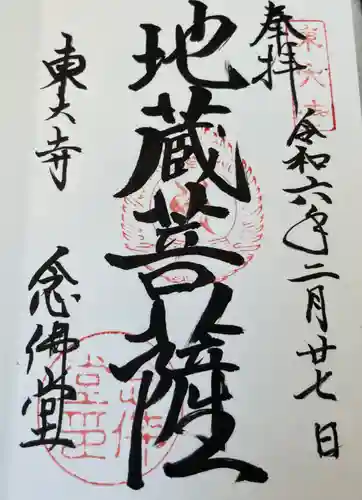 奉拝
令和六年二月廿七日
地蔵菩薩
東大寺
念佛堂
東大寺